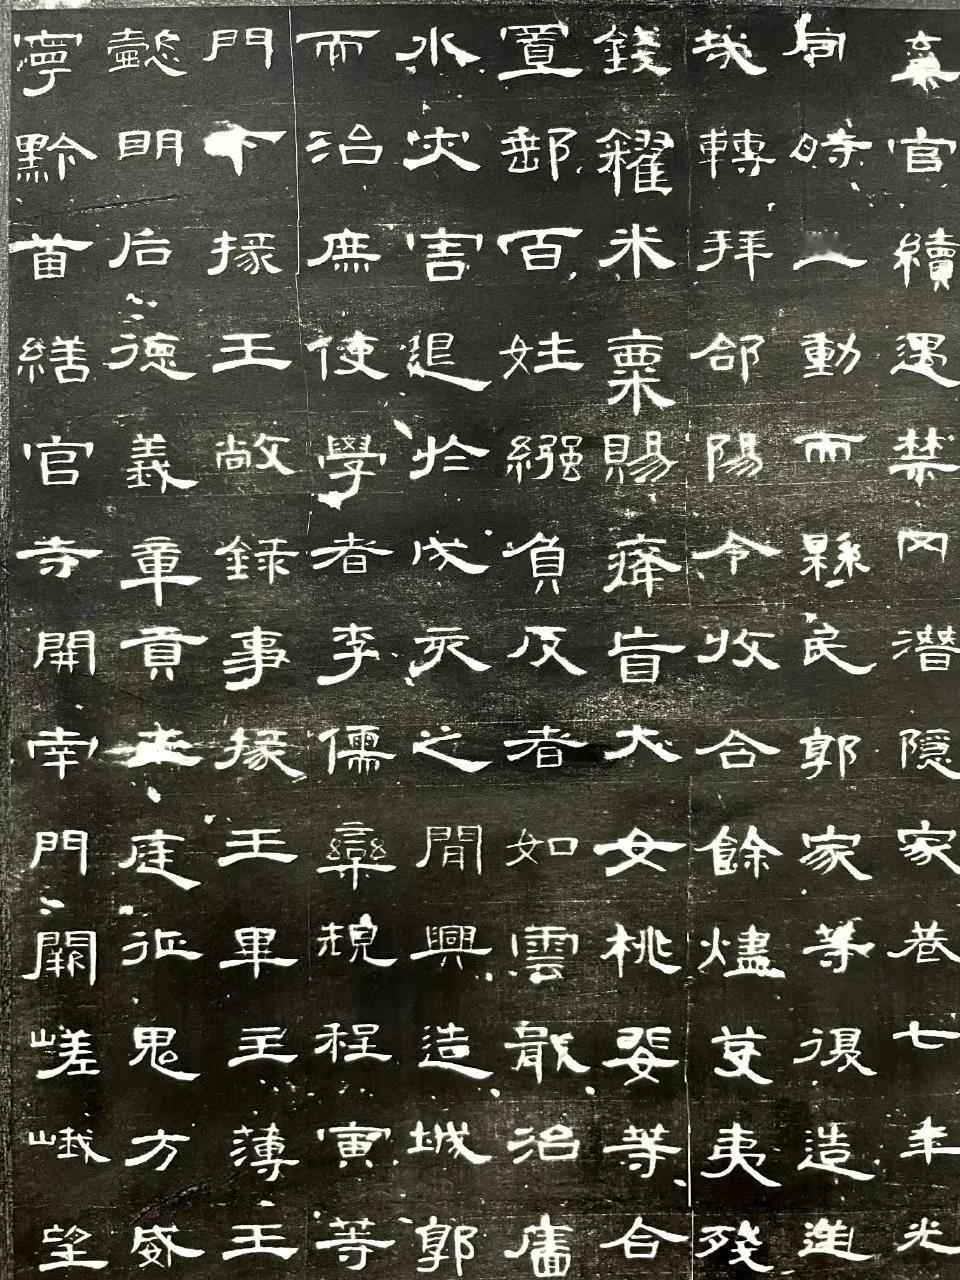 棄官續遇禁冈潛隱家巷七年光
同時動而縣民郭家等復造逆
哉轉拜郃陽令收合餘燼芟夷殘
錢糴米粟賜瘽盲大女桃婓等合
置郵百姓繈負反者如雲戢治廧
水灾害退於戌亥之間興造城郭
而治庶使學者李儒欒規程寅等
門下掾王敞錄事掾王畢主薄王
懿明后德義章貢王庭征鬼方威
寧黔首繕官寺開南門闕嵯峨望